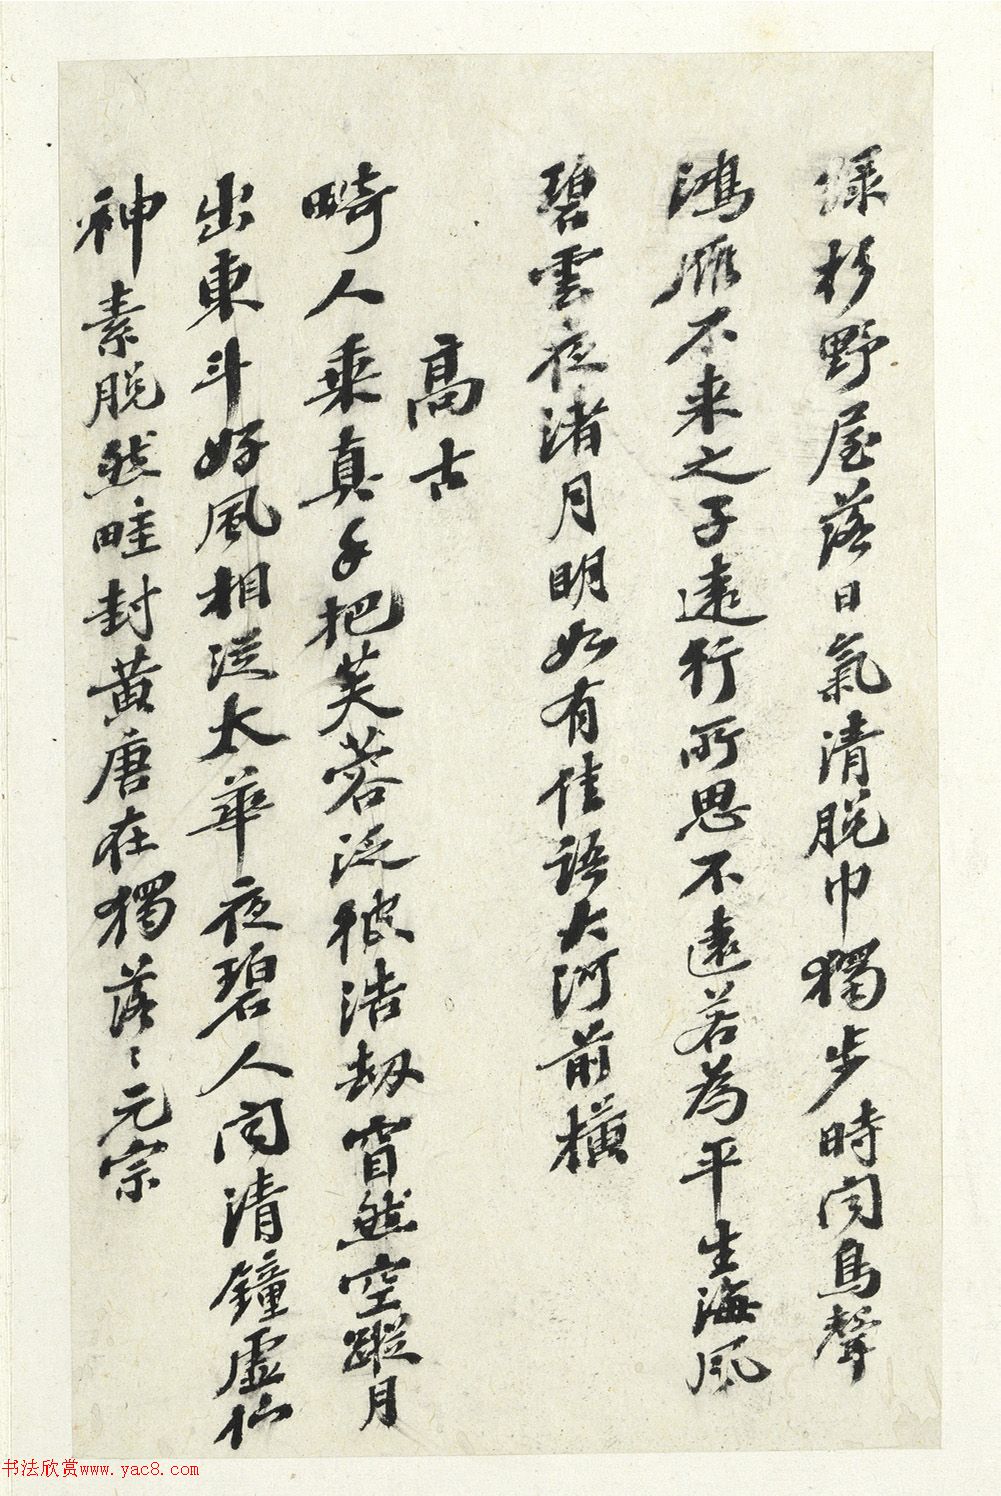 綠杉野屋落日氣清脫巾獨步時聞鳥聲
鴻雁不來之子遠行所思不遠若為平生海風
碧雲夜渚月明如有佳語大河前橫
高古
畸人乘真手把芙蓉泛彼浩劫窅然空蹤月
出東斗好風相從太華夜碧人聞清鐘虛佇
神素脫然畦封黃唐在獨落〻元宗
书法欣赏www.yac8.com